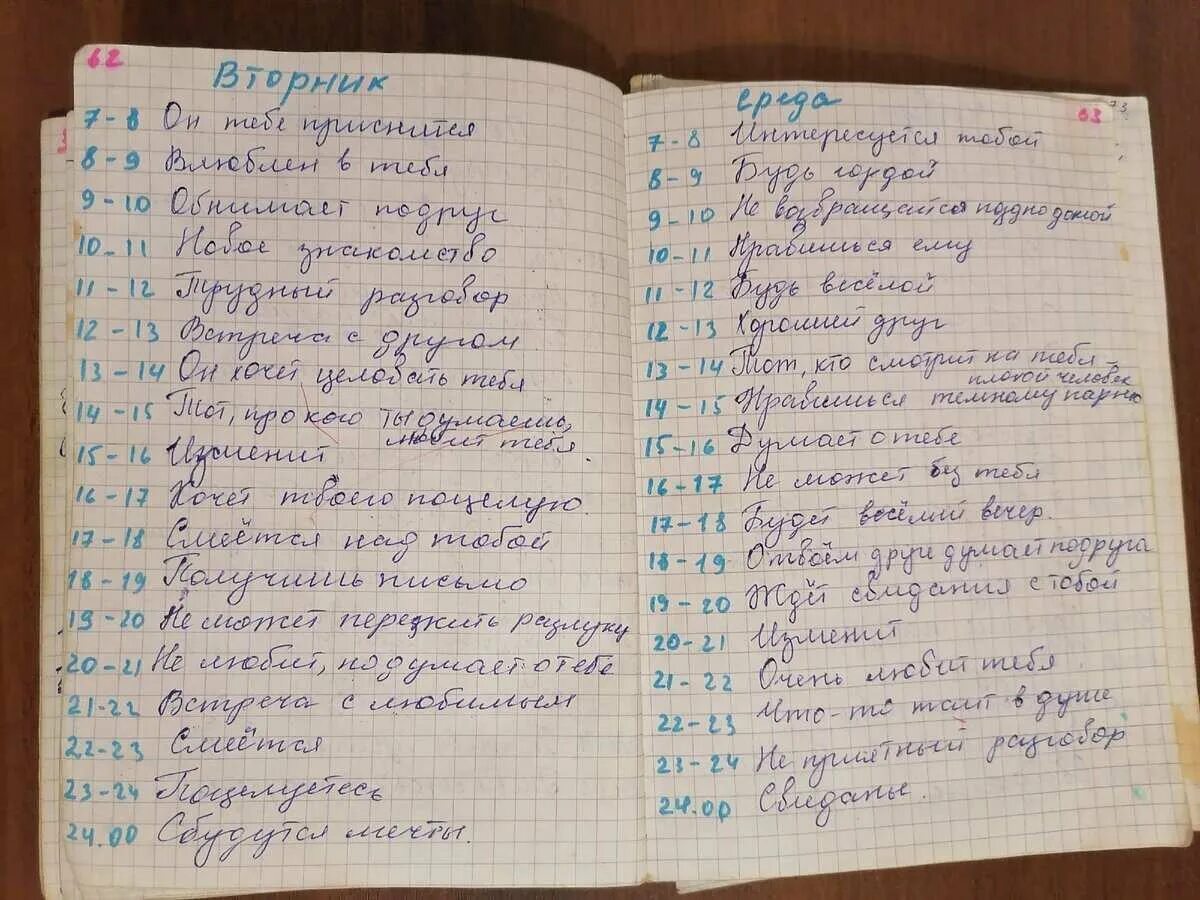 62
Вторник
7-8 Он тебе приснится
8-9 Влюблен в тебя
9-10 Обнимает подруг
10-11 Новое знакомство
11-12 Трудный разговор
12-13 Встреча с другом
13-14 Он хочет целовать тебя
14-15 Тот, про кого ты думаешь,
любит тебя.
15-16 Изменит
16-17 Хочет твоего поцелую
17-18 Смеётся над тобой
18-19 Получишь письмо
19-20 Не может пережить разлуку
20-21 Не любит, но думает о тебе
21-22 Встреча с любимым
22-23 Смеётся
23-24 Поцелуетесь
24.00 Сбудутся мечты.
среда
63
73
7-8 Интересуется тобой
8-9 Будь гордой
9-10 Не возвращайся поздно домой
10-11 Нравишься ему
11-12 Будь весёлой
12-13 Хороший друг
13-14 Тот, кто смотрит на тебя –
плохой человек
14-15 Нравишься темному парню
15-16 Думает о тебе
16-17 Не может без тебя
17-18 Будет весёлый вечер.
18-19 О твоём друге думает подруга
19-20 Ждёт свидания с тобой
20-21 Изменит
21-22 Очень любит тебя
22-23 Что-то таит в душе
23-24 Не приятный разговор
24.00 Свиданье.